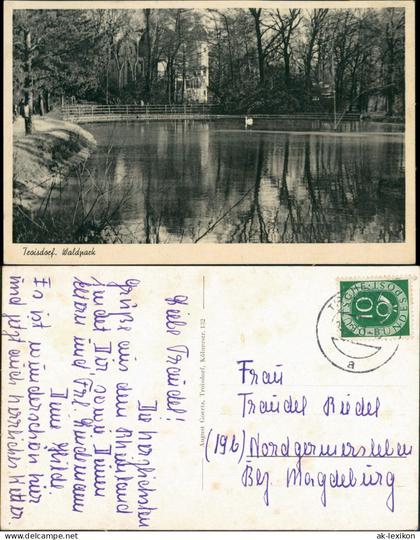 Troisdorf. Waldpark
Liebe Traudel!
Die herzlichsten
Grüße aus dem Rheinland
sendet Dir, sowie Deinen
Eltern und Frl.
Deine Hilde.
Es ist wunderschön hier
und jetzt auch herrliches Wetter
August Goertz, Troisdorf, Kölnerstr. 132
DEUTSCHE BUNDESPOST
10
a
Frau
Traudel Riedel
(19b) Nordgermersleben
Bez. Magdeburg
© ak-lexikon.com
ak-lexikon